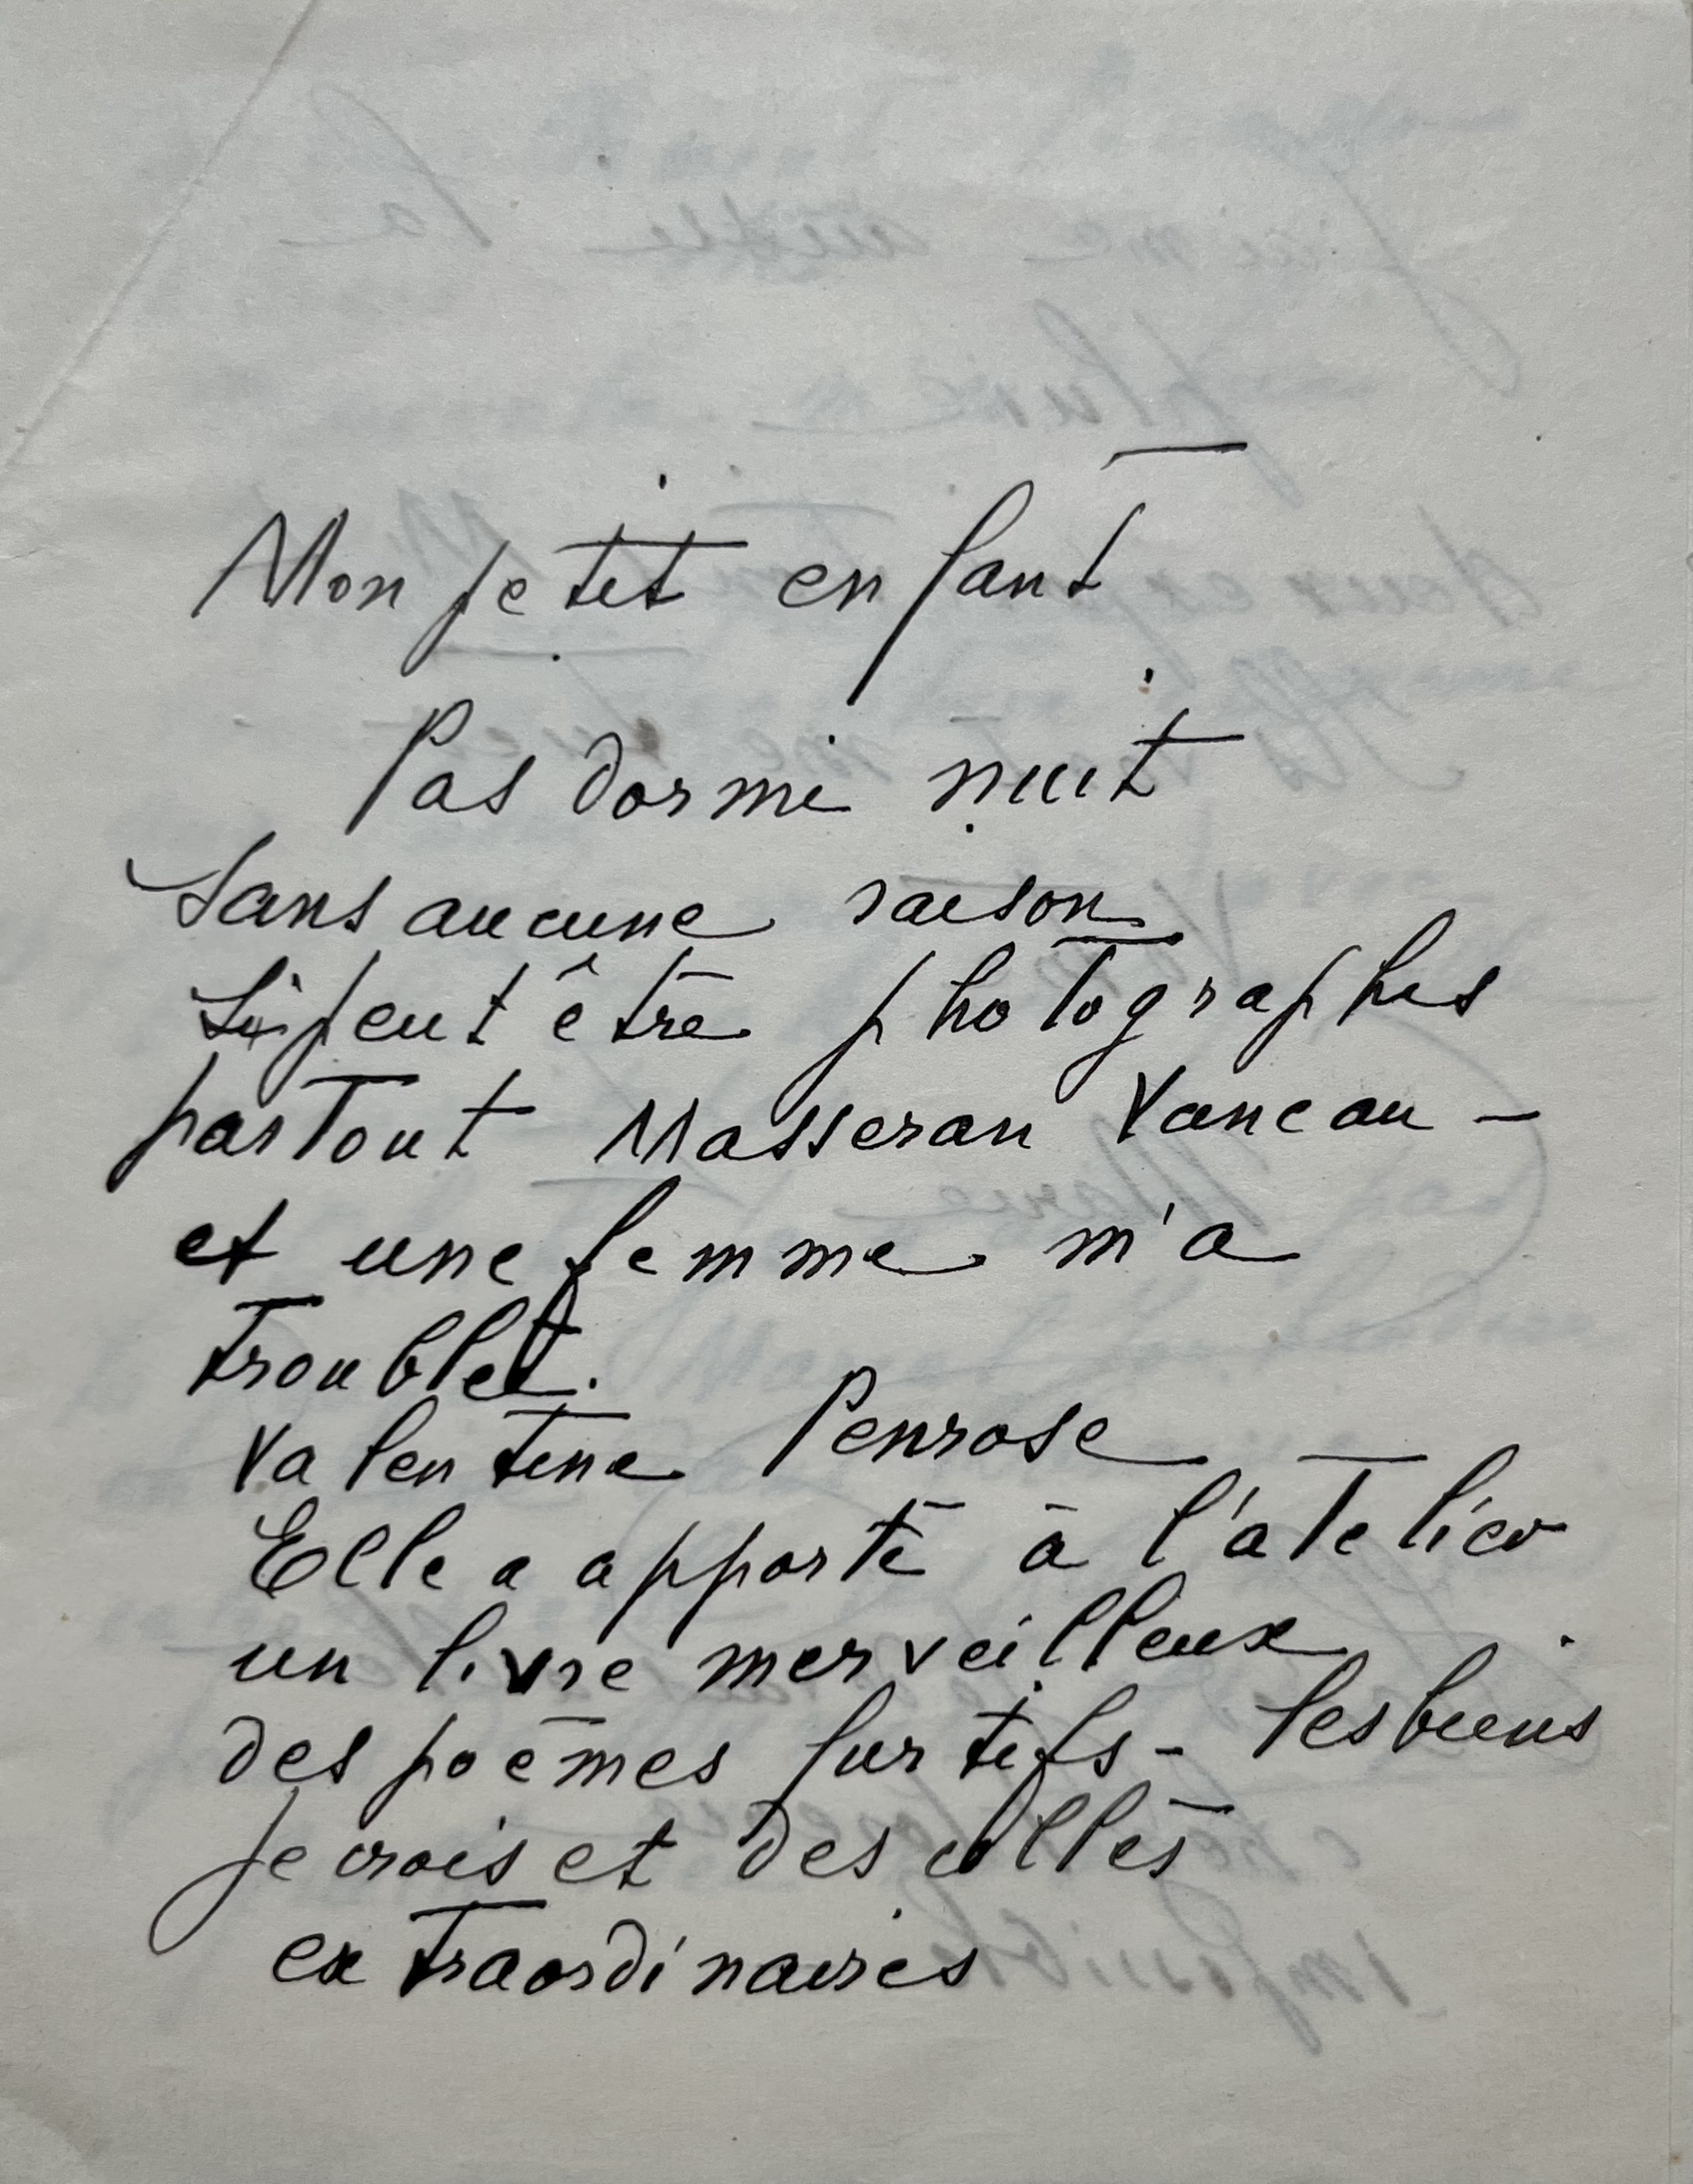 Mon petit enfant
Pas dormi nuit
Sans aucune raison
Si peut être photographes
partout Masseran Vaneau -
et une femme m'a
troublé.
Valentine Penrose
Elle a apporté à l'atelier
un livre merveilleux
des poèmes furtifs - lesbiens
je crois et des collés
extraordinaires